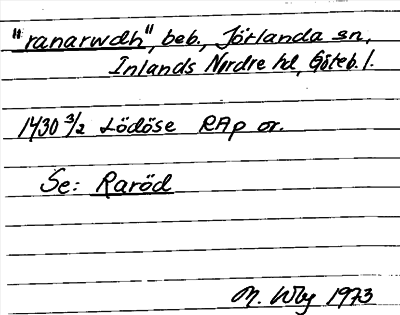 "ranarwdh", beb., Jörlanda sn,
Inlands Nordre hd, Göteb. l.
1430 3/2 Lödöse RAp or.
Se: Raröd
M. Wby 1973